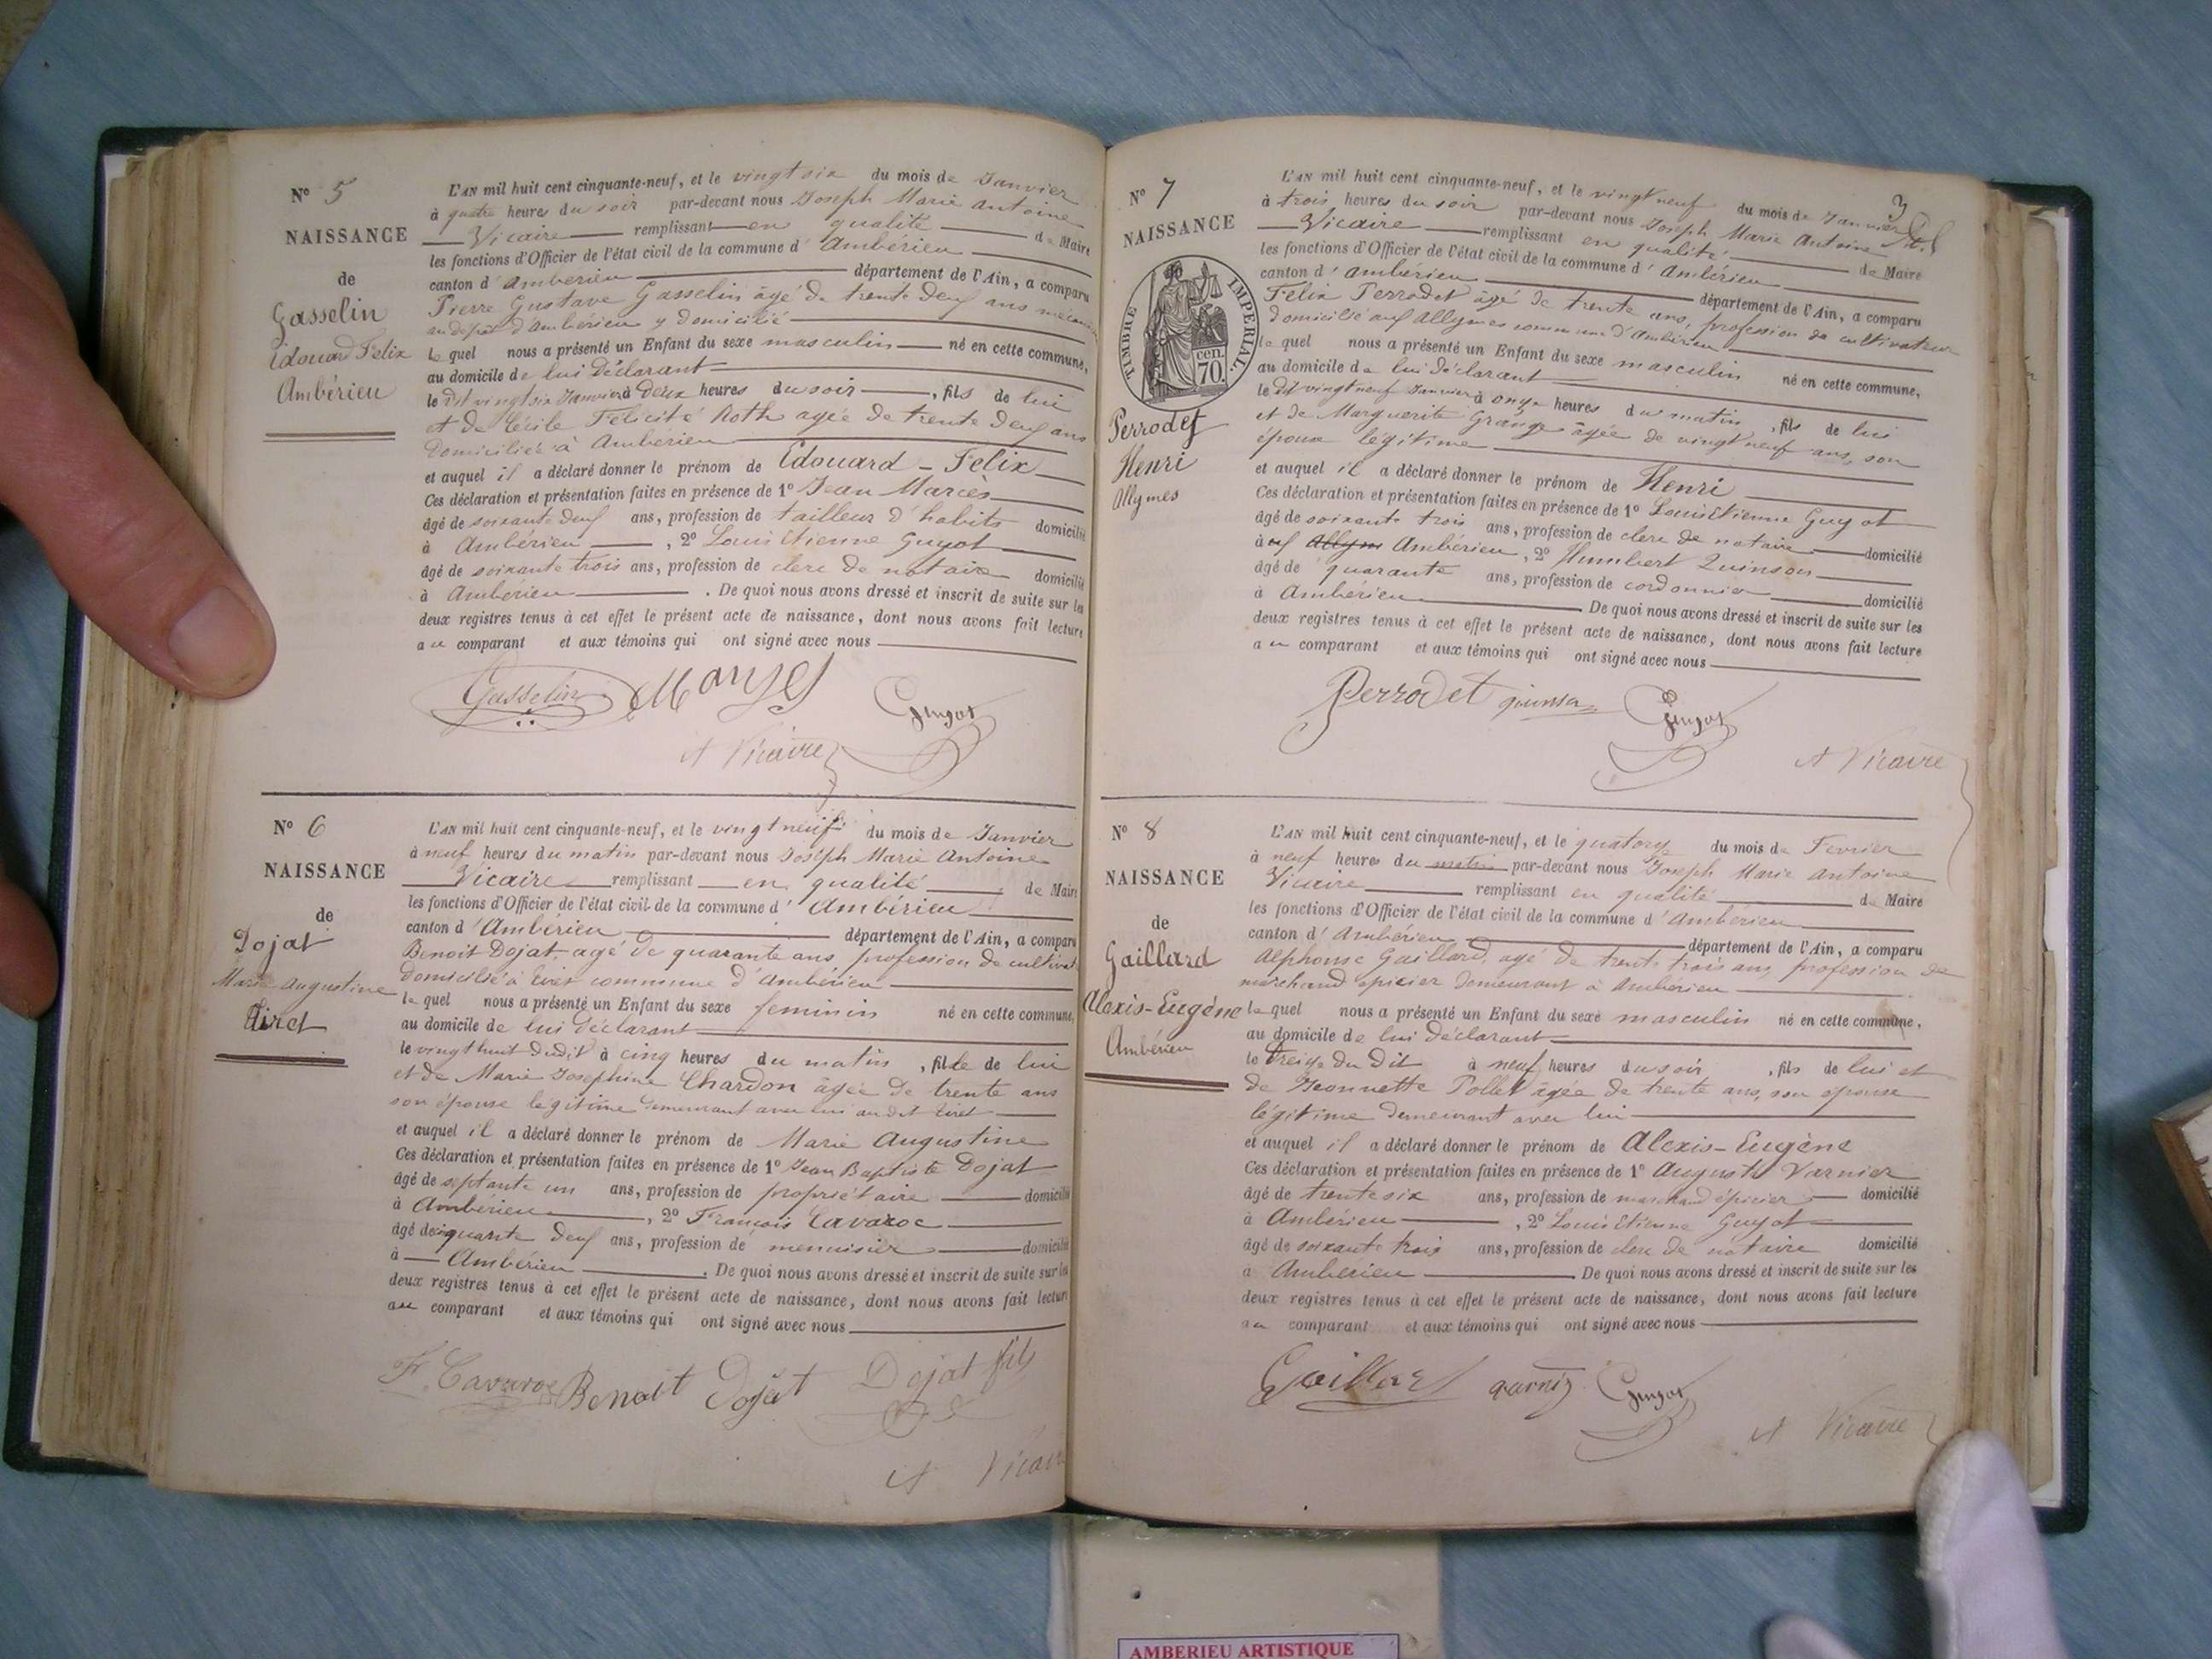 N° 5
NAISSANCE
de
Gasselin
Edouard Felix
Ambérieu
L'AN mil huit cent cinquante-neuf, et le vingt six du mois de Janvier
à quatre heures du soir par-devant nous Joseph Marie Antoine
Vicaire remplissant en qualité de Maire
les fonctions d'Officier de l'état civil de la commune d' Ambérieu
canton d' Ambérieu département de l'Ain, a comparu
Pierre Gustave Gasselin âgé de trente deux ans
au dépôt d'Ambérieu y domicilié
le quel nous a présenté un Enfant du sexe masculin né en cette commune,
au domicile de lui déclarant
le dit vingt six Janvier à deux heures du soir , fils de lui
et de Cécile Félicité Roth agée de trente deux ans
domiciliés à Ambérieu
et auquel il a déclaré donner le prénom de Edouard - Felix
Ces déclaration et présentation faites en présence de 1° Jean Mariès
âgé de soixante deux ans, profession de tailleur d'habits domicilié
à Ambérieu , 2° Louis Etienne Guyot
âgé de soixante trois ans, profession de clerc de notaire domicilié
à Ambérieu . De quoi nous avons dressé et inscrit de suite sur les
deux registres tenus à cet effet le présent acte de naissance, dont nous avons fait lecture
au comparant et aux témoins qui ont signé avec nous
Gasselin Guyot
A Vicaire
N° 6
NAISSANCE
de
Dojat
Marie Augustine
Tiret
L'AN mil huit cent cinquante-neuf, et le vingt neuf du mois de Janvier
à neuf heures du matin par-devant nous Joseph Marie Antoine
Vicaire remplissant en qualité de Maire
les fonctions d'Officier de l'état civil de la commune d' Ambérieu
canton d' Ambérieu département de l'Ain, a comparu
Benoit Dojat agé de quarante ans profession de cultivat
domicilié à Tiret commune d'Ambérieu
le quel nous a présenté un Enfant du sexe feminin né en cette commune,
au domicile de lui déclarant
le vingt huit dudit à cinq heures du matin , fille de lui
et de Marie Josephine Chardon âgée de trente ans
son épouse légitime demeurant avec lui au dit Tiret
et auquel il a déclaré donner le prénom de Marie Augustine
Ces déclaration et présentation faites en présence de 1° Jean Baptiste Dojat
âgé de septante un ans, profession de propriétaire domicilié
à Ambérieu , 2° François Cavaroc
âgé de cinquante deux ans, profession de menuisier domicilié
à Ambérieu . De quoi nous avons dressé et inscrit de suite sur les
deux registres tenus à cet effet le présent acte de naissance, dont nous avons fait lecture
au comparant et aux témoins qui ont signé avec nous
F. Cavaroc Benoit Dojat Dojat fils
A Vicaire
3
N° 7
NAISSANCE
TIMBRE IMPERIAL.
cen.
70.
Perrodet
Henri
Allymes
L'AN mil huit cent cinquante-neuf, et le vingt neuf du mois de Janvier
à trois heures du soir par-devant nous Joseph Marie Antoine
Vicaire remplissant en qualité de Maire
les fonctions d'Officier de l'état civil de la commune d' Ambérieu
canton d' Ambérieu département de l'Ain, a comparu
Félix Perrodet âgé de trente ans, profession de cultivateur
domicilié aux Allymes commune d'Ambérieu
le quel nous a présenté un Enfant du sexe masculin né en cette commune,
au domicile de lui déclarant
le dit vingt neuf Janvier à onze heures du matin , fils de lui
et de Marguerite Grange âgée de vingt neuf ans, son
épouse légitime
et auquel il a déclaré donner le prénom de Henri
Ces déclaration et présentation faites en présence de 1° Louis Etienne Guyot
âgé de soixante trois ans, profession de clerc de notaire domicilié
à Ambérieu , 2° Humbert Quinson
âgé de quarante ans, profession de cordonnier domicilié
à Ambérieu De quoi nous avons dressé et inscrit de suite sur les
deux registres tenus à cet effet le présent acte de naissance, dont nous avons fait lecture
au comparant et aux témoins qui ont signé avec nous
Perrodet quinson Guyot
A Vicaire
N° 8
NAISSANCE
de
Gaillard
Alexis-Eugène
Ambérieu
L'AN mil huit cent cinquante-neuf, et le quatorze du mois de Fevrier
à neuf heures du matin par-devant nous Joseph Marie Antoine
Vicaire remplissant en qualité de Maire
les fonctions d'Officier de l'état civil de la commune d' Ambérieu
canton d' Ambérieu département de l'Ain, a comparu
Alphonse Gaillard, agé de trente trois ans, profession de
marchand épicier demeurant à Ambérieu
le quel nous a présenté un Enfant du sexe masculin né en cette commune,
au domicile de lui déclarant
le treize du dit à neuf heures du soir , fils de lui et
de Jeannette Pollet âgée de trente ans, son épouse
légitime demeurant avec lui
et auquel il a déclaré donner le prénom de Alexis-Eugène
Ces déclaration et présentation faites en présence de 1° Auguste Varnier
âgé de trente six ans, profession de marchand épicier domicilié
à Ambérieu , 2° Louis Etienne Guyot
âgé de soixante trois ans, profession de clerc de notaire domicilié
à Ambérieu De quoi nous avons dressé et inscrit de suite sur les
deux registres tenus à cet effet le présent acte de naissance, dont nous avons fait lecture
au comparant et aux témoins qui ont signé avec nous
Gaillard Guyot
A Vicaire
AMBERIEU ARTISTIQUE